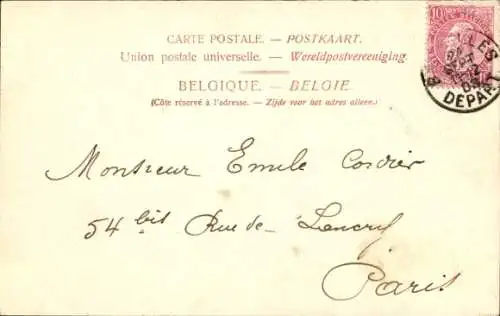 CARTE POSTALE. — POSTKAART.
Union postale universelle. — Wereldpostvereeniging.
BELGIQUE. — BELGIE.
(Côte réservé à l'adresse. — Zijde voor het adres alleen.)
10
LES
DEPART
Monsieur Emile Cordier
54 bis Rue de Lancry
Paris